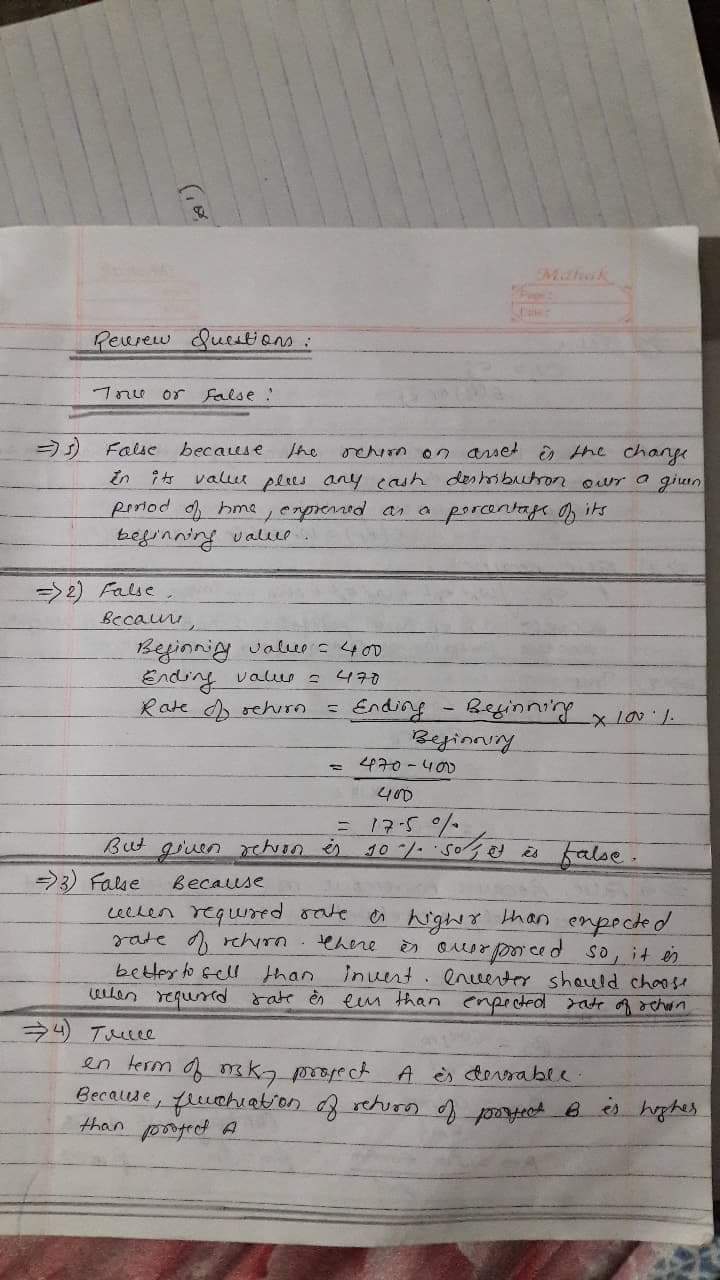 Q.1)
Mahak
Page:
Date:
Review Questions:
True or False:
⇒ 1) False because the return on asset is the change
in its value plus any cash distribution over a given
period of time, expressed as a percentage of its
beginning value.
⇒ 2) False.
Because,
Beginning value = 400
Ending value = 470
Rate of return = Ending - Beginning × 100%
Beginning
= 470-400
400
= 17.5 %
But given return is 10%. so, it is false.
⇒ 3) False Because
when required rate is higher than expected
rate of return. there is overpriced so, it is
better to sell than invest. Investor should choose
when required rate is than expected rate of return
⇒ 4) True
en term of risk, project A is desirable.
Because, fluctuation of return of project B is higher
than project A